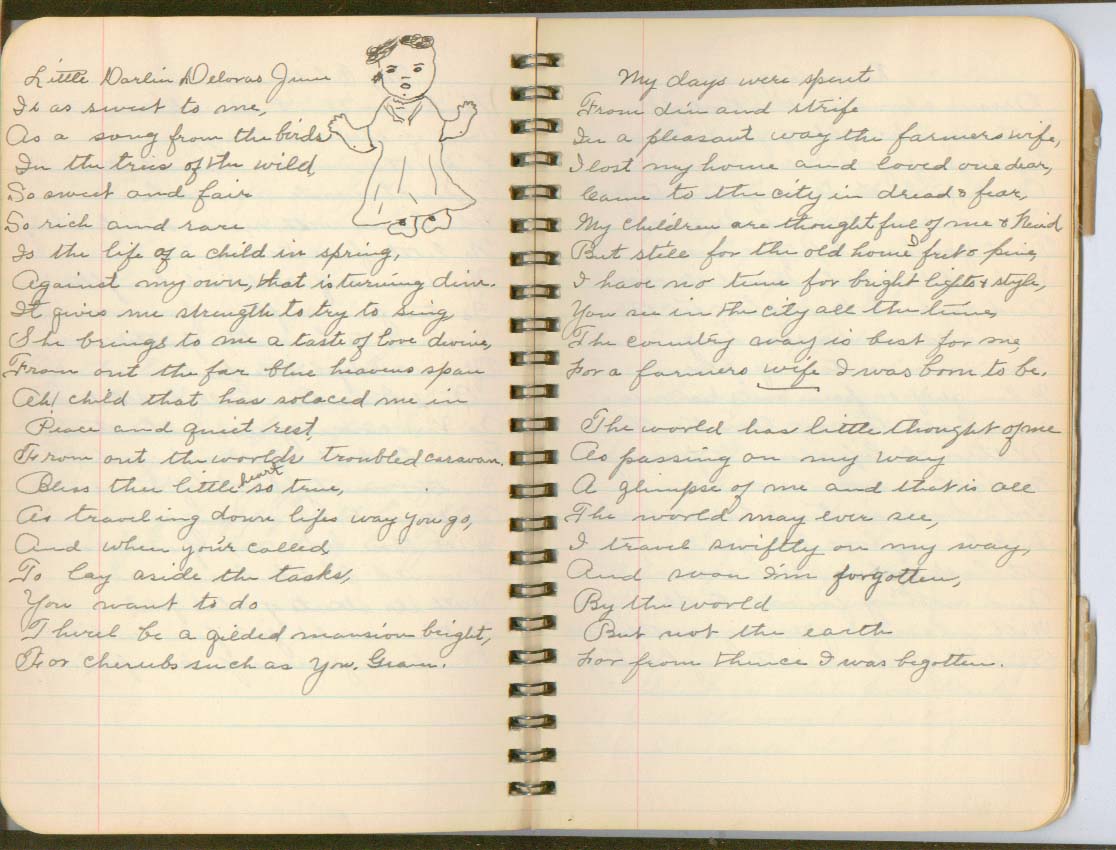 Little Darlin Deloras June
Is as sweet to me,
As a song from the birds
In the trees of the wild,
So sweet and fair
So rich and rare
Is the life of a child in spring,
Against my own, that is turning dim.
It gives me strength to try to sing
She brings to me a taste of love divine,
From out the far blue heavens span
Ah! child that has solaced me in
Peace and quiet rest,
From out the worlds troubled caravan.
Bless thee little heart so true,
As traveling down lifes way you go,
And when your called
To lay aside the tasks,
You want to do
Therel be a gilded mansion bright,
For cherubs such as You. Gram.
My days were spent
From din and strife
In a pleasant way the farmers wife,
I lost my home and loved one dear,
Came to the city in dread & fear,
My children are thoughtful of me & Kind
But still for the old home I fret & pine,
I have no time for bright lights & style,
You see in the city all the time,
The country way is best for me,
For a farmers wife I was born to be.
The world has little thought of me
As passing on my way
A glimpse of me and that is all
The world may ever see,
I travel swiftly on my way,
And soon I'm forgotten,
By the world
But not the earth
For from thence I was begotten.